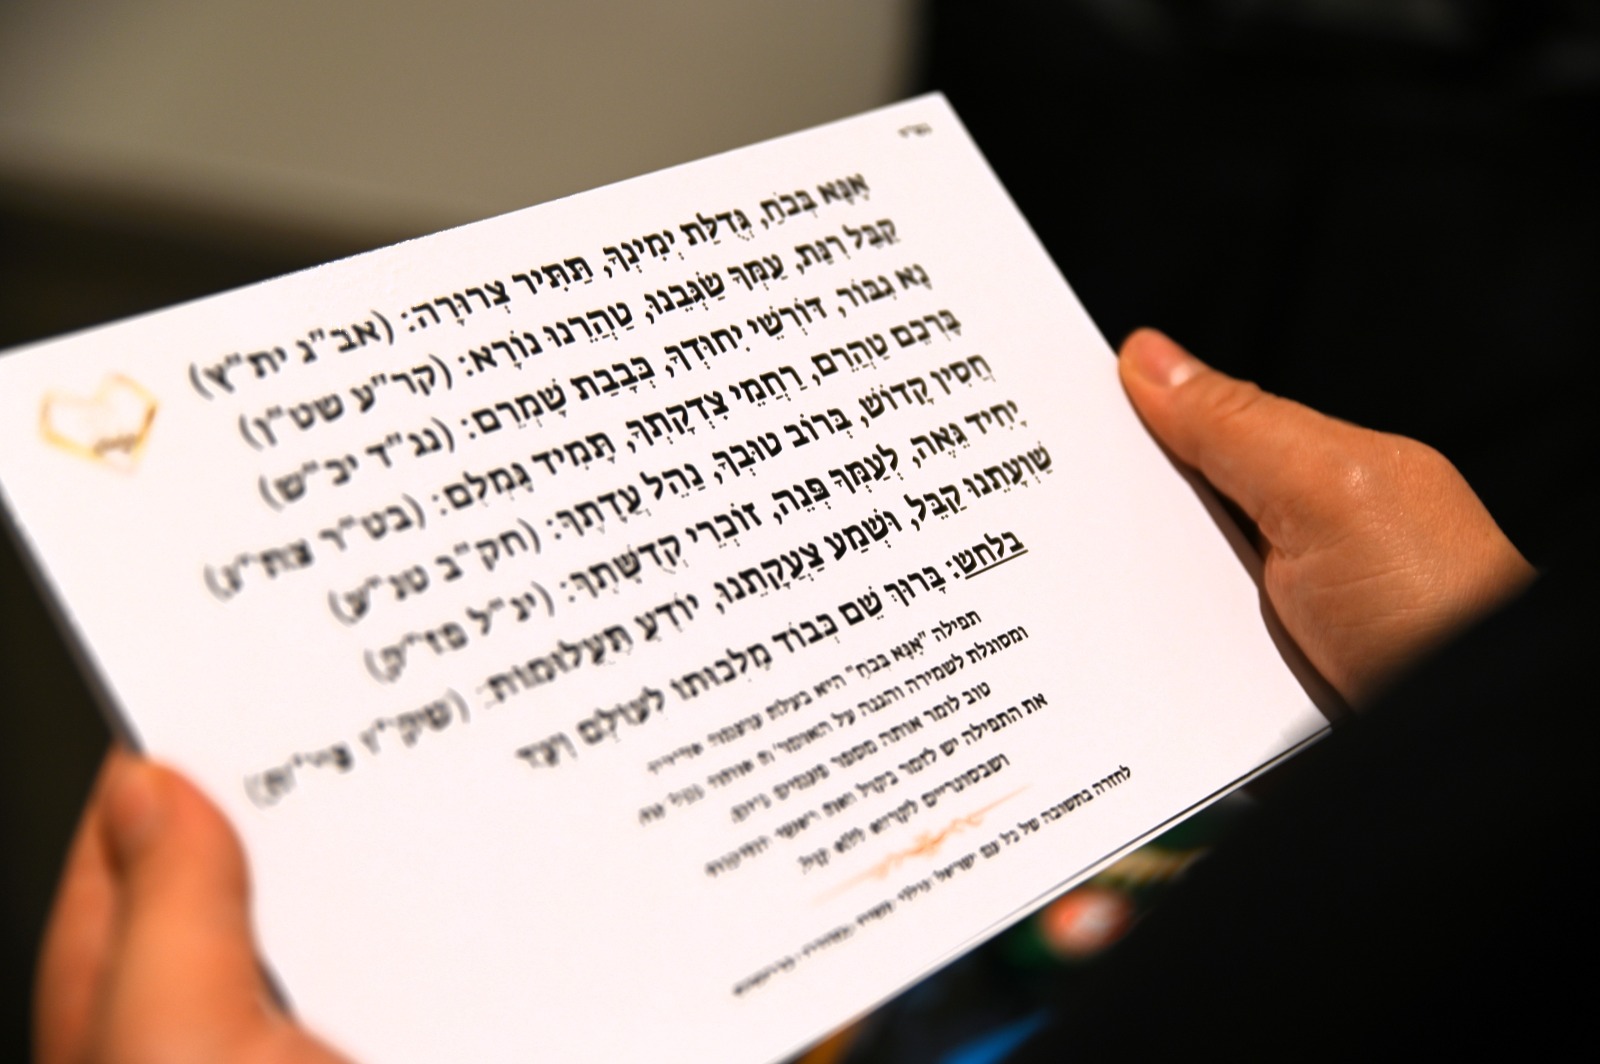 בס"ד
אָנָּא בְּכֹחַ, גְּדֻלַּת יְמִינְךָ, תַּתִּיר צְרוּרָה: (אב"ג ית"ץ)
קַבֵּל רִנַּת, עַמְּךָ שַׂגְּבֵנוּ, טַהֲרֵנוּ נוֹרָא: (קר"ע שט"ן)
נָא גִבּוֹר, דּוֹרְשֵׁי יִחוּדְךָ, כְּבָבַת שָׁמְרֵם: (נג"ד יכ"ש)
בָּרְכֵם טַהֲרֵם, רַחֲמֵי צִדְקָתְךָ, תָּמִיד גָּמְלֵם: (בט"ר צת"ג)
חֲסִין קָדוֹשׁ, בְּרוֹב טוּבְךָ, נַהֵל עֲדָתֶךָ: (חק"ב טנ"ע)
יָחִיד גֵּאֶה, לְעַמְּךָ פְּנֵה, זוֹכְרֵי קְדֻשָּׁתֶךָ: (יג"ל פז"ק)
שַׁוְעָתֵנוּ קַבֵּל, וּשְׁמַע צַעֲקָתֵנוּ, יוֹדֵעַ תַּעֲלוּמוֹת: (שק"ו צי"ת)
בלחש: בָּרוּךְ שֵׁם כְּבוֹד מַלְכוּתוֹ לְעוֹלָם וָעֶד
תפילה "אָנָּא בְּכֹחַ" היא בעלת עוצמה אדירה
ומסוגלת לשמירה והגנה על האומר/ת אותה בכל עת
טוב לומר אותה מספר פעמים ביום.
את התפילה יש לומר בקול ואת ראשי התיבות
ושבסוגריים לקרוא ללא קול.
לחזרה בתשובה של כל עם ישראל